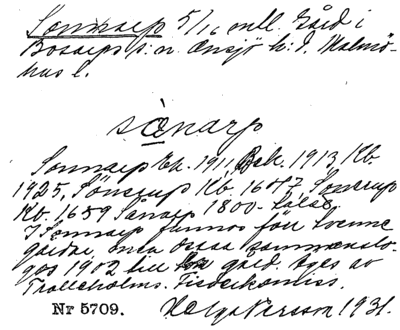 Sonnarp 5/16 mtl. Gård i
Bosarps s:n Onsjö h:d, Malmö-
hus l.
sònarp
Sonnarp Ek. 1911, Bsk. 1913, Kb.
1925, Sönerup Kb. 1687, Sonerup
Kb. 1659 Sånarp 1800-talet.
I Sonnarp funnos förr tvenne
gårdar, men dessa sammanslo-
gos 1902 till gård. Äges av
Trolleholms Fideikommiss.
Nr 5709. Helge Persson 1931.